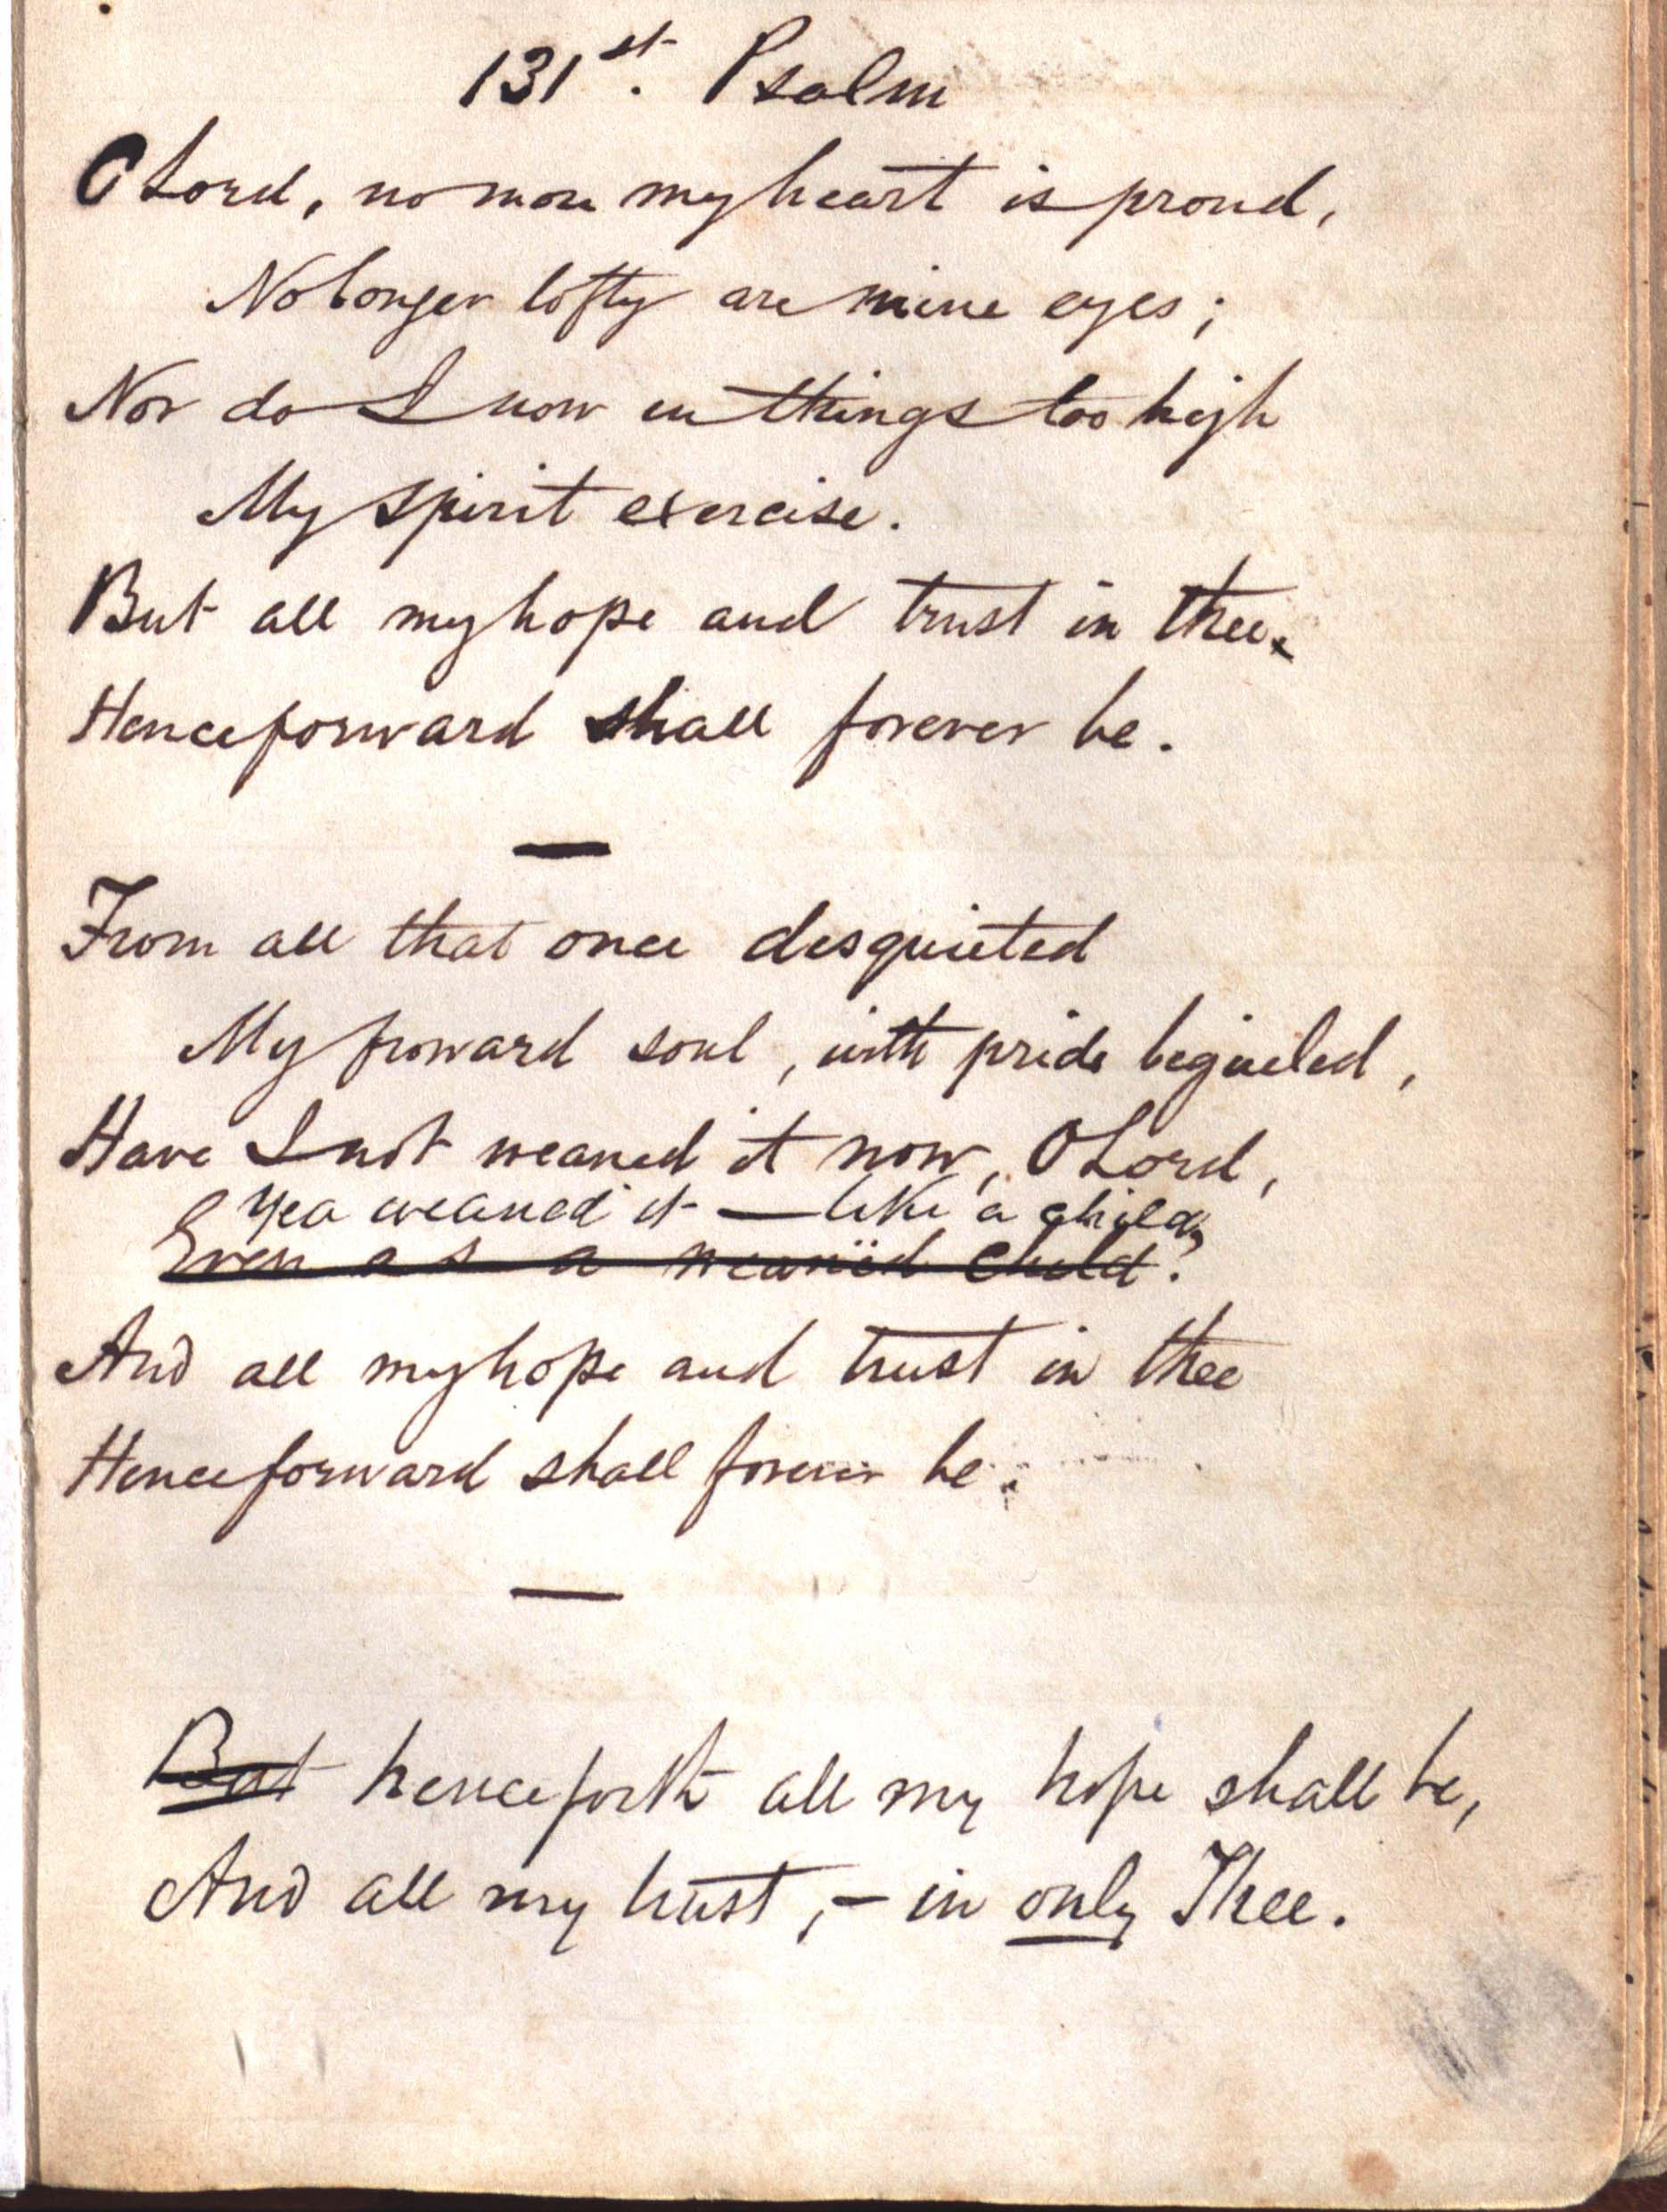 131st. Psalm
O Lord, no more my heart is proud,
No longer lofty are mine eyes;
Nor do I now in things too high
My spirit exercise.
But all my hope and trust in thee
Henceforward shall forever be.
From all that once disquieted
My froward soul, with pride beguiled,
Have I not weaned it now, O Lord,
Yea weaned it — like a child?
Even as a weanëd child?
And all my hope and trust in thee
Henceforward shall forever be.
But henceforth all my hope shall be,
And all my trust, – in only Thee.